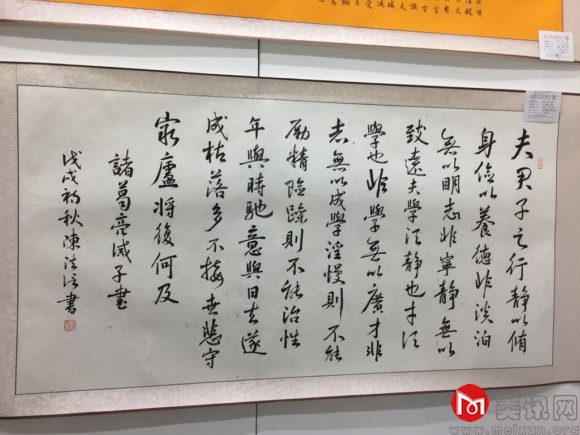 夫君子之行静以脩
身俭以養德非淡泊
無以明志非寧静無以
致遠夫學须静也才须
學也非學無以廣才非
志無以成學淫慢則不能
励精险躁則不能治性
年與時馳意與日去遂
成枯落多不接世悲守
穷廬将復何及
諸葛亮诫子書
戊戌初秋陳
書
美讯网
www.meixun.org